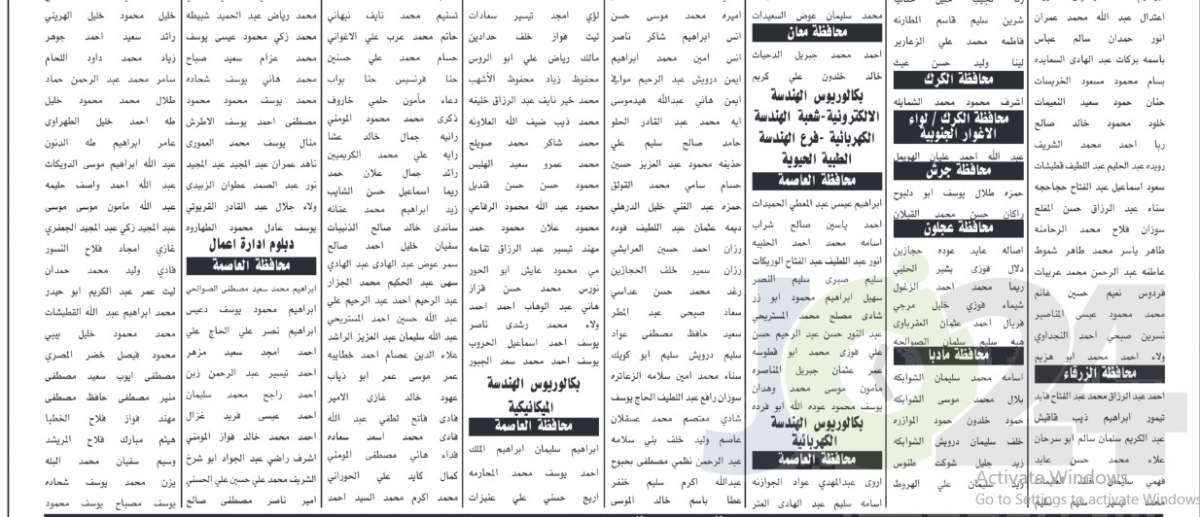 اعتدال عبد الله محمد عمران
انور حمدان سالم عباس
باسمه بركات عبد الهادي السعايده
بسام محمود مسعود الخريسات
حنان حمود سعيد النعيمات
خلود محمود خالد صالح
ربا احمد محمد الشريف
رويده عبد الحليم عبد اللطيف قطيشات
سعود اسماعيل عبد الفتاح حجاحجه
سناء عبد الرزاق حسن المفلح
سوزان فلاح محمد الرحامنه
طاهر ياسر محمد طاهر شموط
عاطفه عبد الرحمن محمد عربيات
فردوس نعيم حسين غانم
محمد محمود عيسى المناصير
نسرين صبحي احمد النجداوي
ولاء احمد محمد ابو هزيم
محافظة الزرقاء
احمد عبد الرزاق محمد عبد الفتاح فايد
تيمور ابراهيم ذيب قاقيش
عبد الكريم سلمان سالم ابو سرحان
علاء محمد حسن عابد
شرين سليم قاسم المطارنه
فاطمه محمد علي الزعارير
لينا وليد حسن غيث
محافظة الكرك
اشرف محمود محمد الشمايله
محافظة الكرك / لواء
الاغوار الجنوبية
عبد الله احمد عليان الهويمل
محافظة جرش
حمزه طلال يوسف ابو دلبوح
راكان حسن محمد القبلان
محافظة عجلون
اصاله عايد عوده حجازين
دلال فوزي بشير الحلبي
ريما محمد احمد الزغول
شيماء فوزي خليل مرجي
فريال احمد عثمان العقرباوي
هبه سليم سلمان الصوالحه
محافظة مادبا
اسامه محمد سليمان الشوابكه
بلال محمد موسى الشوابكه
حمود خلدون حمود الموازره
خلف سليمان درويش الشوابكه
زيد جليل شوكت طنوس
زيد سليمان علي الهروط
محمد سليمان عوض السعيدات
محافظة معان
احمد محمد جبريل الدحيات
خالد خلدون علي كريم
بكالوريوس الهندسة
الالكترونية-شعبة الهندسة
الكهربائية -فرع الهندسة
الطبية الحيوية
محافظة العاصمة
ابراهيم عيسى عبد المعطي الحميدات
احمد ياسين صالح شراب
اسامه محمد احمد الحلبيه
انور عبد اللطيف عبد الفتاح الوريكات
سليم صبري سليم النصر
سهيل ابراهيم محمود ابو زر
شادي مصلح محمد المستريحي
عبد النور حسن عبد الرحيم حسن
علي فوزي محمد ابو قطوسه
عمر عثمان جبريل المناصره
مأمون موسى محمد وهدان
يوسف محمود عوده الله ابو فرده
بكالوريوس الهندسة
الكهربائية
محافظة العاصمة
اروى عبدالمهدي عواد الجوازنه
اسامه سليم عبد الهادي العتر
اميره محمد موسى حسن
انس ابراهيم شاكر ناصر
انس امين محمد ابراهيم
ايمن درويش عبد الرحيم موافي
ايمن هاني عبدالله هيدموسى
ايه محمد عبد القادر الحلو
حامد صالح سليم علي
حذيفه محمود عبد العزيز حسين
حسام سامي محمد القولق
حمزه عبد الغني خليل الدرهلي
ديمه عثمان عبد اللطيف فوده
رزان احمد حسين العرايشي
رزان سمير خلف الحجازين
رغد محمد حسن عداسي
سعاد صبحي عبد المطر
سعيد حافظ مصطفى عواد
سليم درويش سليم ابو كويك
سناء محمد امين سلامه الزعاتره
سوزان رافع عبد اللطيف الحاج يوسف
شادي معتصم محمد عسقلان
عاصم وليد خلف بني سلامه
عبد الرحمن نظمي مصطفى بحبوح
عبدالله اكرم سليم خنفر
عطا باسم خالد الموسى
لؤي امجد تيسير سعادات
ليث فواز خلف حدادين
مالك رياض علي ابو الروس
محفوظ زياد محفوظ الأشهب
محمد خير نايف عبد الرزاق خليفه
محمد ذيب ضيف الله العلاونه
محمد شاكر محمد صويلح
محمد عمرو سعيد الهليس
محمود حسن حسن قنديل
محمود عبد الله محمود الرفاعي
محمود علان محمود حمد
مهند تيسير عبد الرزاق تفاحه
مي محمود عايش ابو الحور
نورس محمد حسن قزاز
هاني عبد الوهاب احمد احمد
ولاء محمد رشدي ناصر
يوسف احمد اسماعيل الحروب
يوسف احمد محمد سعد الجبور
بكالوريوس الهندسة
الميكانيكية
محافظة العاصمة
ابراهيم سليمان ابراهيم الملك
احمد يوسف محمد المحارمه
اريج حسني علي عنيزات
تسليم محمد نايف نبهاني
حاتم محمد عرب علي الاغواني
حسام محمد علي حسنين
حنا فرنسيس حنا بواب
دعاء مأمون حلمي خاروف
ذكرى محمد محمود المومني
رانيه جمال خالد عشا
رايه علي محمد الكريميين
رائد جمال علان حمد
ريما اسماعيل حسن الشايب
زيد ابراهيم محمد عنانه
ساندي خالد صالح الذنيبات
سفيان خليل احمد صالح
سمر عوض عبد الهادي عبد الهادي
سهى عبد الحكيم محمد الجزار
عبد الرحيم احمد عبد الرحيم علي
عبد الله حسين احمد المستريحي
عبد الله سليمان عبد العزيز الراشد
علاء الدين عصام احمد خطايبه
عمر موسى عمر ابو ذياب
عهود خالد غازي الامير
فادي فاتح لطفي عبد الله
فادي محمد اسعد سعاده
فداء هاني مصطفى المومني
كمال كايد علي الحوراني
محمد اكرم محمد السيد احمد
محمد رياض عبد الحميد شبيطه
محمد زكي محمود عيسى يوسف
محمد عزام سعيد صباح
محمد هاني يوسف شحاده
محمد يوسف محمود محمود
مصطفى احمد يوسف الاطرش
منال يوسف محمد العموري
ناهد عمران عبد المجيد عبد المجيد
نور عبد الصمد عطوان الزبيدي
ولاء جلال عبد القادر القريوتي
يوسف عادل محمود الطهاروه
دبلوم ادارة اعمال
محافظة العاصمة
ابراهيم محمد سعيد مصطفى الصوالحي
ابراهيم محمود يوسف دعيس
ابراهيم نصر علي الحاج علي
احمد امجد سعيد مزهر
احمد تيسير عبد الرحمن زبن
احمد راجح محمد سليمان
احمد عيسى فريد غزال
احمد محمد خالد فواز المومني
اشرف راضي عبد الجواد ابو شرخ
الشريف محمد علي حسين علي الحسني
امير ناصر مصطفى صالح
خليل محمود خليل الهريني
رائد سعيد احمد جوهر
زياد محمد داود اللحام
سامر محمد عبد الرحمن حماد
طلال محمد محمود خليل
طه احمد خليل الطهراوي
عامر ابراهيم طه الدنون
عبد الله ابراهيم موسى الدويكات
عبد الله احمد واصف حليمه
عبد الله مأمون موسى موسى
عبد المجيد زكي عبد المجيد الجعفري
غازي امجاد فلاح النسور
فادي وليد محمد حمدان
ليث عمر عبد الكريم ابو حيدر
محمد ابراهيم عبد الله القطيشات
محمد محمود خليل بيبي
محمود فيصل خضر المصري
مصطفى ايوب سعيد مصطفى
منير مصطفى حافظ مصطفى
مهند فواز فلاح الخطبا
هيثم مبارك فلاح المريشد
وسيم سفيان محمد البله
يزن محمد يوسف شحاده
يوسف مصباح يوسف محمود
JO24
Activate Windows
Go to Settings to activate Windows